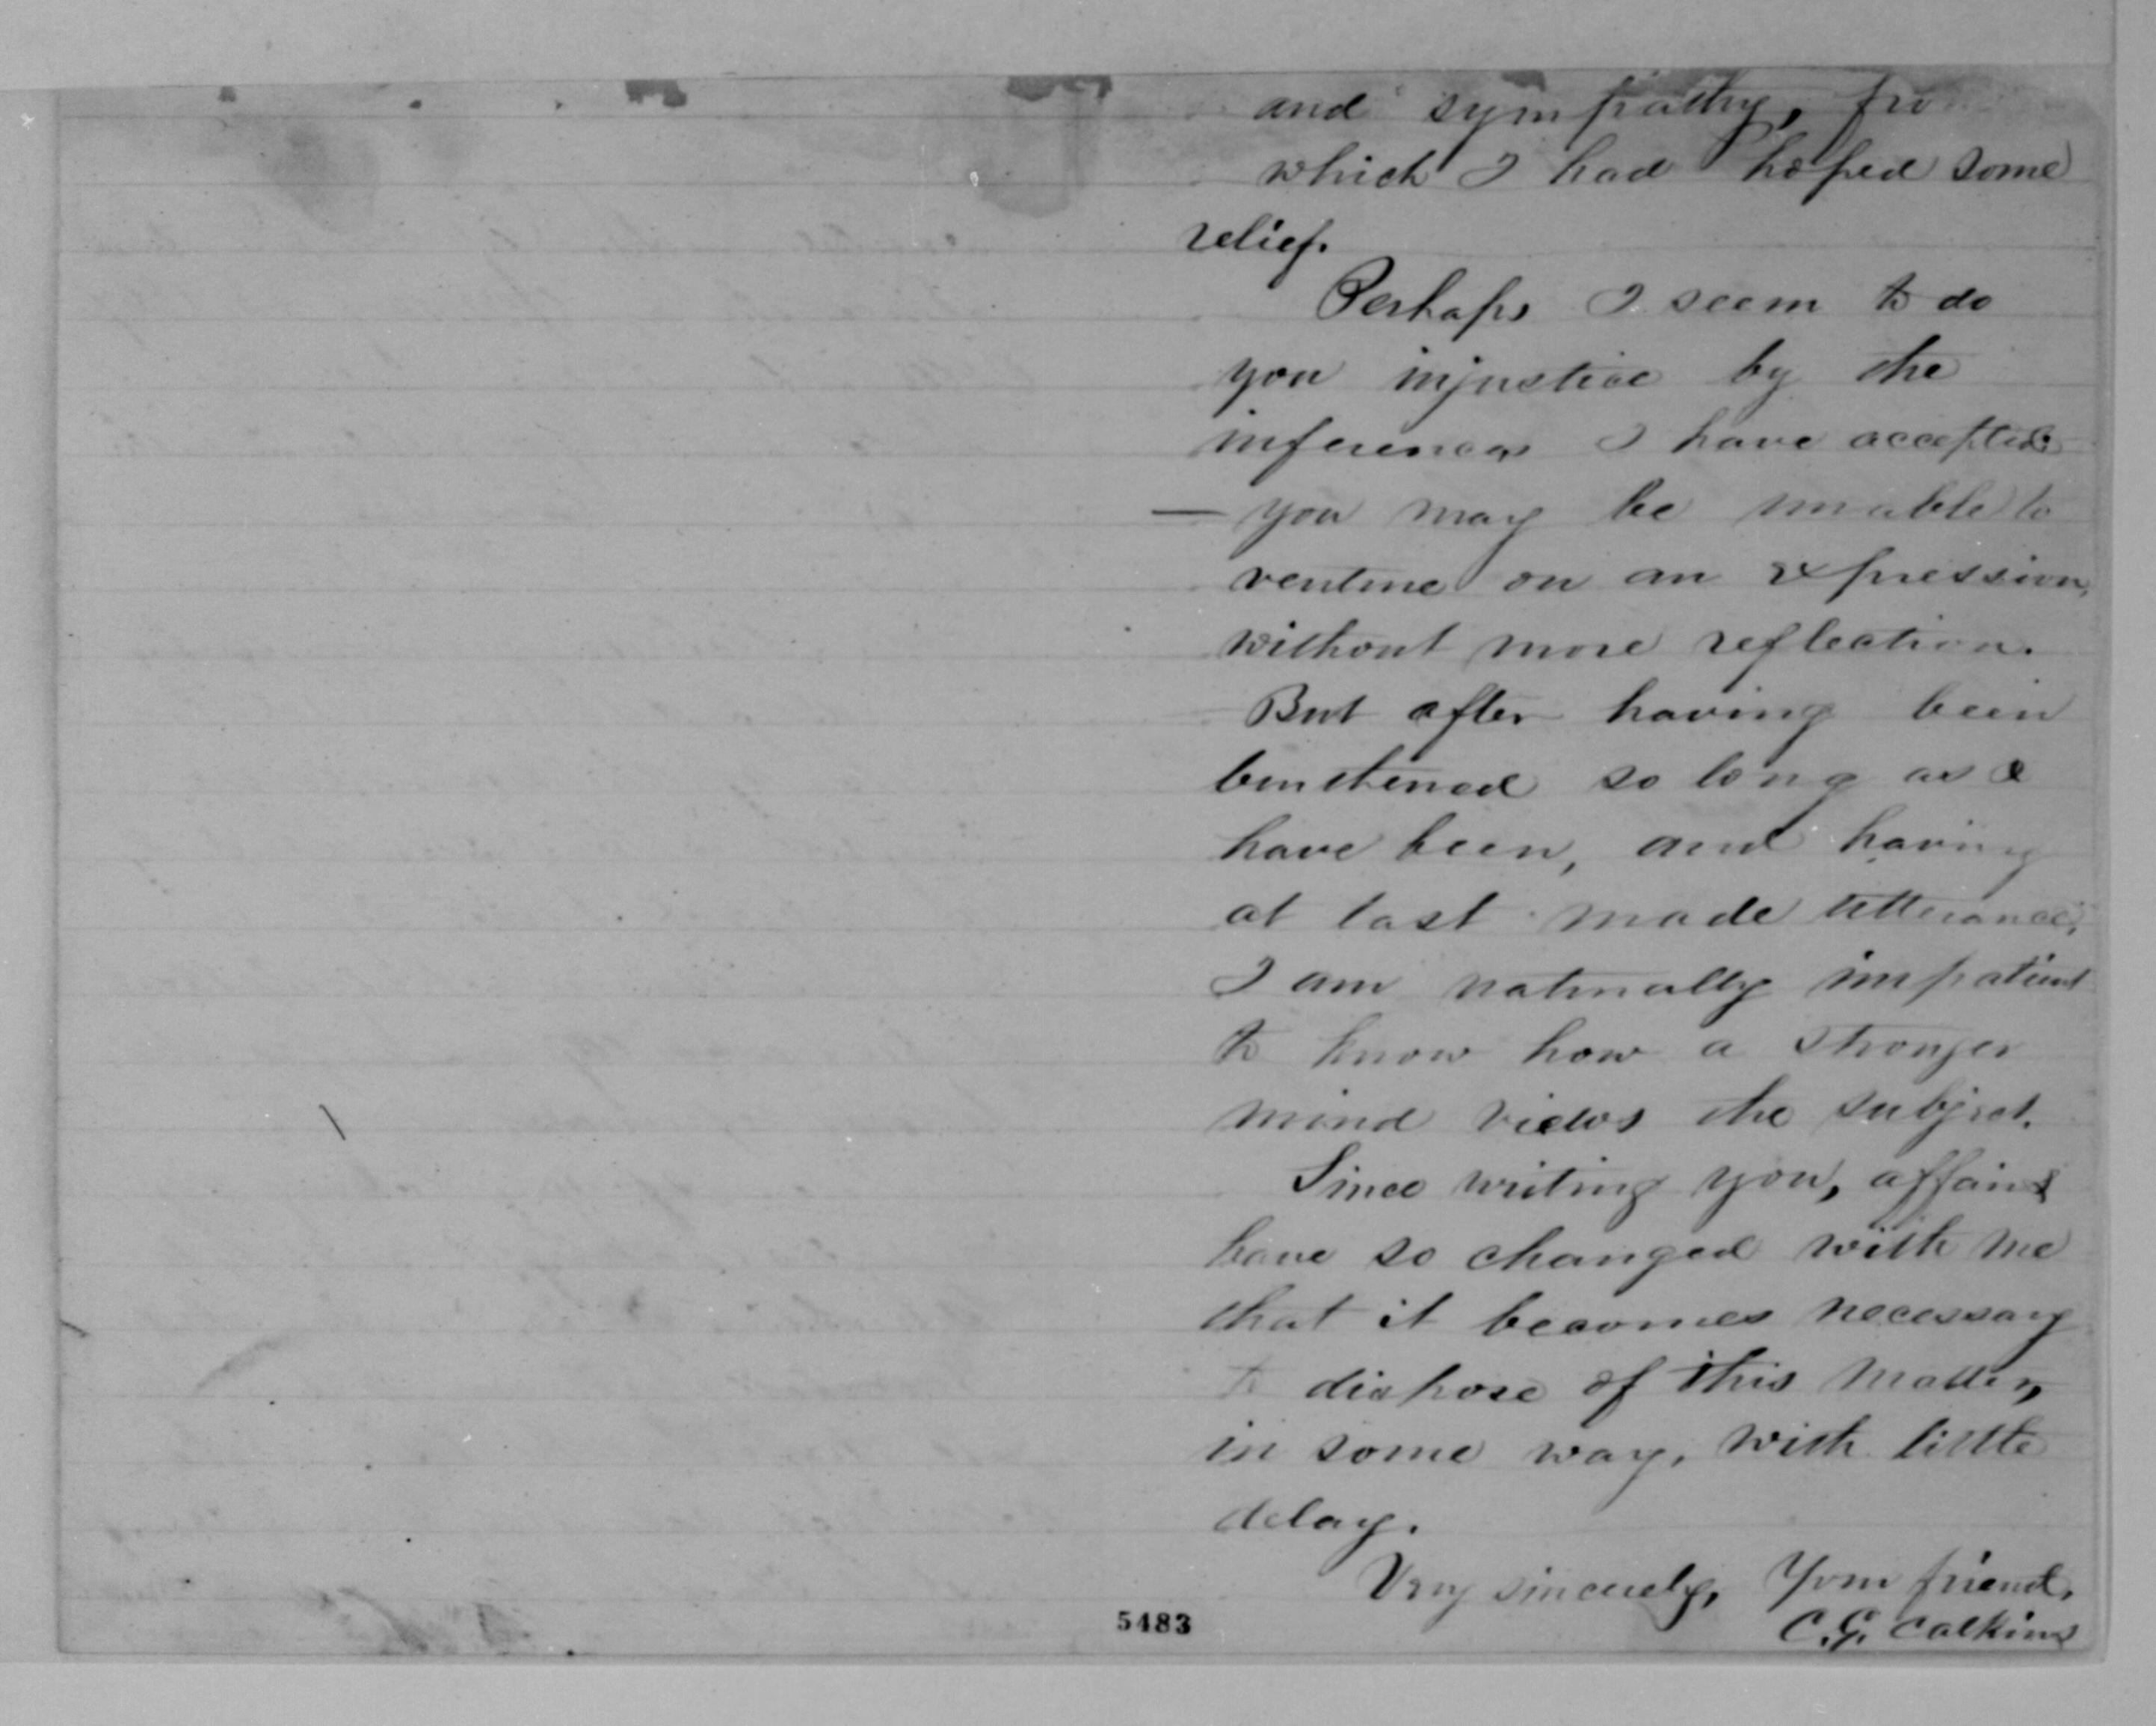 and sympathy, fro
which I had hoped some
relief.
Perhaps I seem to do
you injustice by the
inferences I have accepted
— you may be unable to
venture on an expression,
without more reflection.
But after having been
burthened so long as I
have been, and having
at last made utterance,
I am naturally impatient
to know how a stronger
mind views the subject.
Since writing you, affairs
have so changed with me
that it becomes necessary
to dispose of this matter,
in some way, with little
delay.
Very sincerely, Your friend,
C. G. Calkins
5483